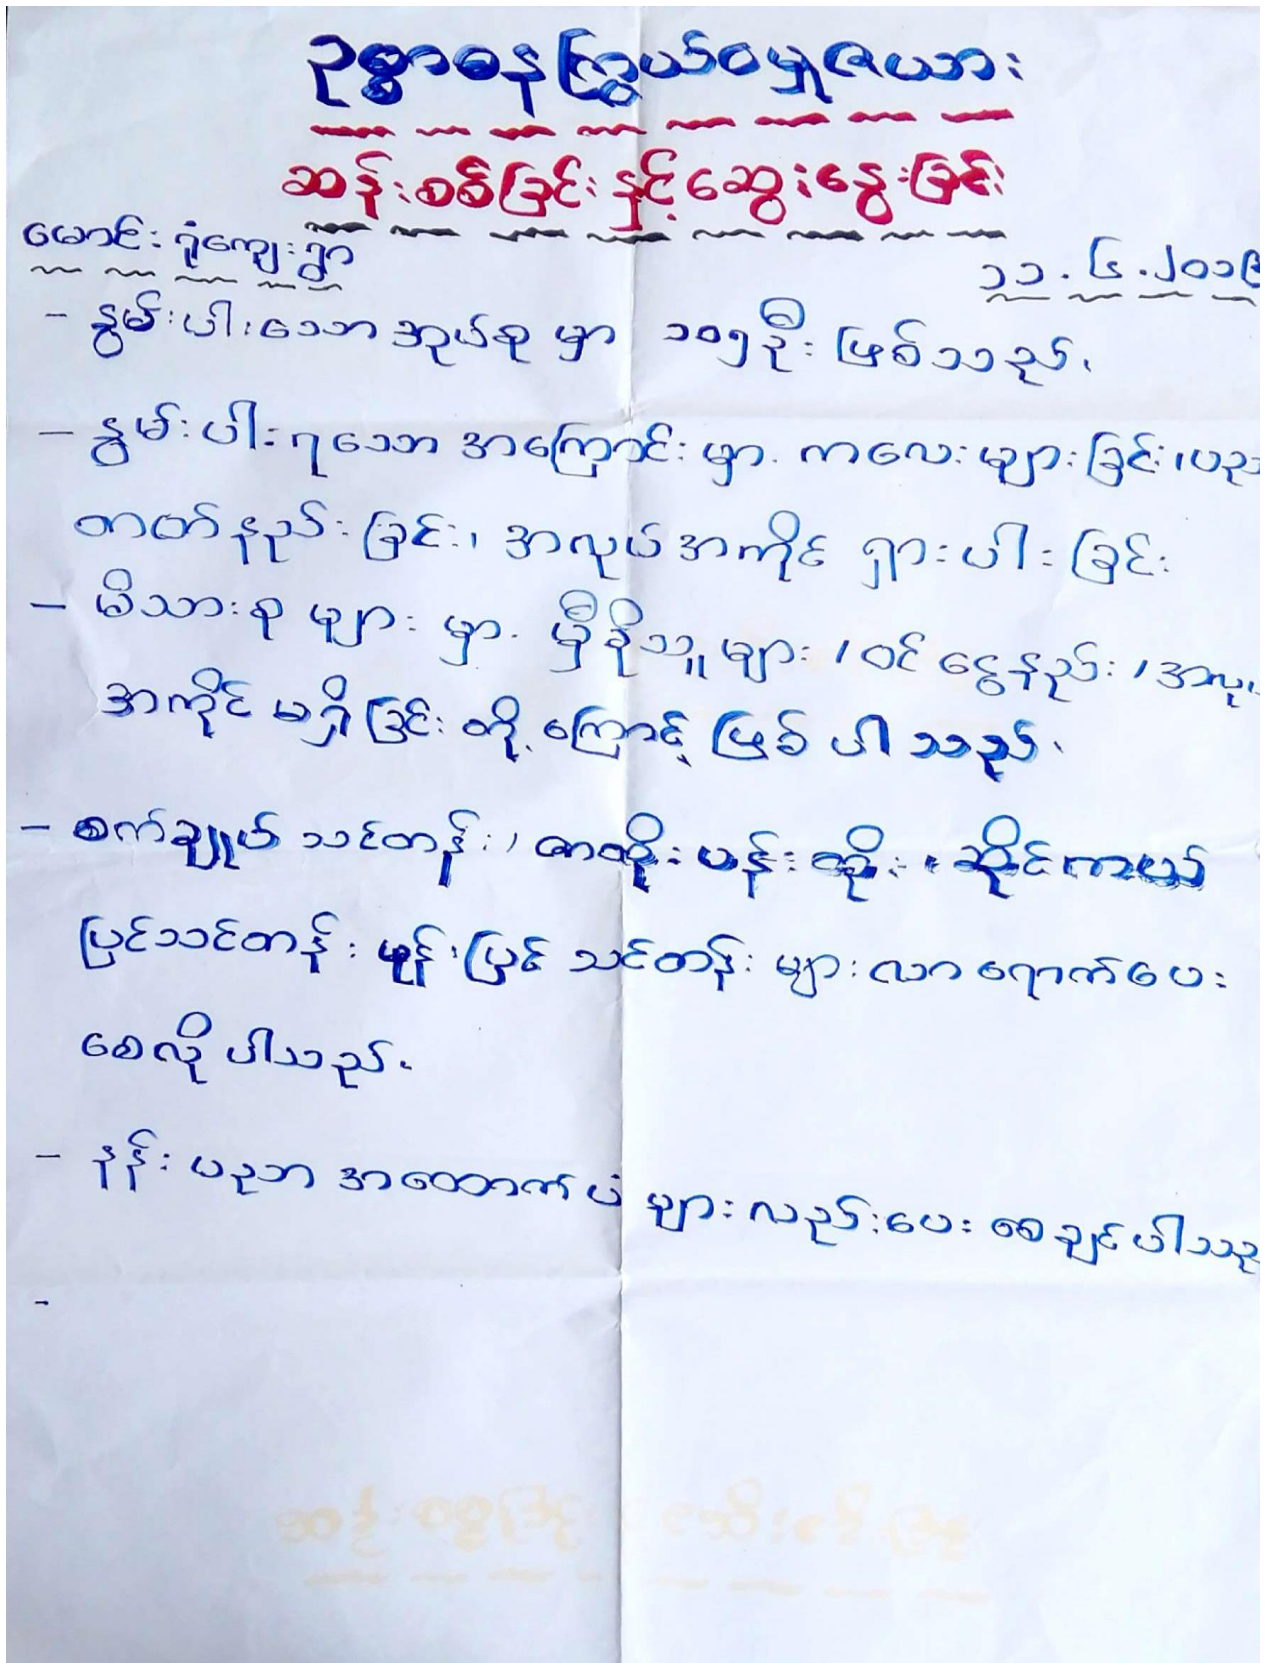 ဥစ္စာဓနကြွယ်ဝမှုဇယား
ဆန်းစစ်ခြင်းနှင့်ဆွေးနွေးခြင်း
မောင်းရုံကျေးရွာ
၁၁.၄.၂၀၁၉
- နွမ်းပါးသောအုပ်စုမှာ ၁၀၅ဦးဖြစ်သည်။
- နွမ်းပါးရသောအကြောင်းမှာ ကလေးများခြင်း၊ ပညာ
တတ်နည်းခြင်း၊ အလုပ်အကိုင် ရှားပါးခြင်း
- မိသားစုများမှာ မှီခိုသူများ၊ ဝင်ငွေနည်း၊ အလု
အကိုင်မရှိခြင်းတို့ကြောင့်ဖြစ်ပါသည်။
- စက်ချုပ်သင်တန်း၊ ဇာထိုးပန်းထိုး၊ ဆိုင်ကယ်
ပြင်သင်တန်း ဖုန်းပြင်သင်တန်းများလာရောက်ပေး
စေလိုပါသည်။
- နည်းပညာ အထောက်ပံ့များလည်းပေးစေချင်ပါသည
-